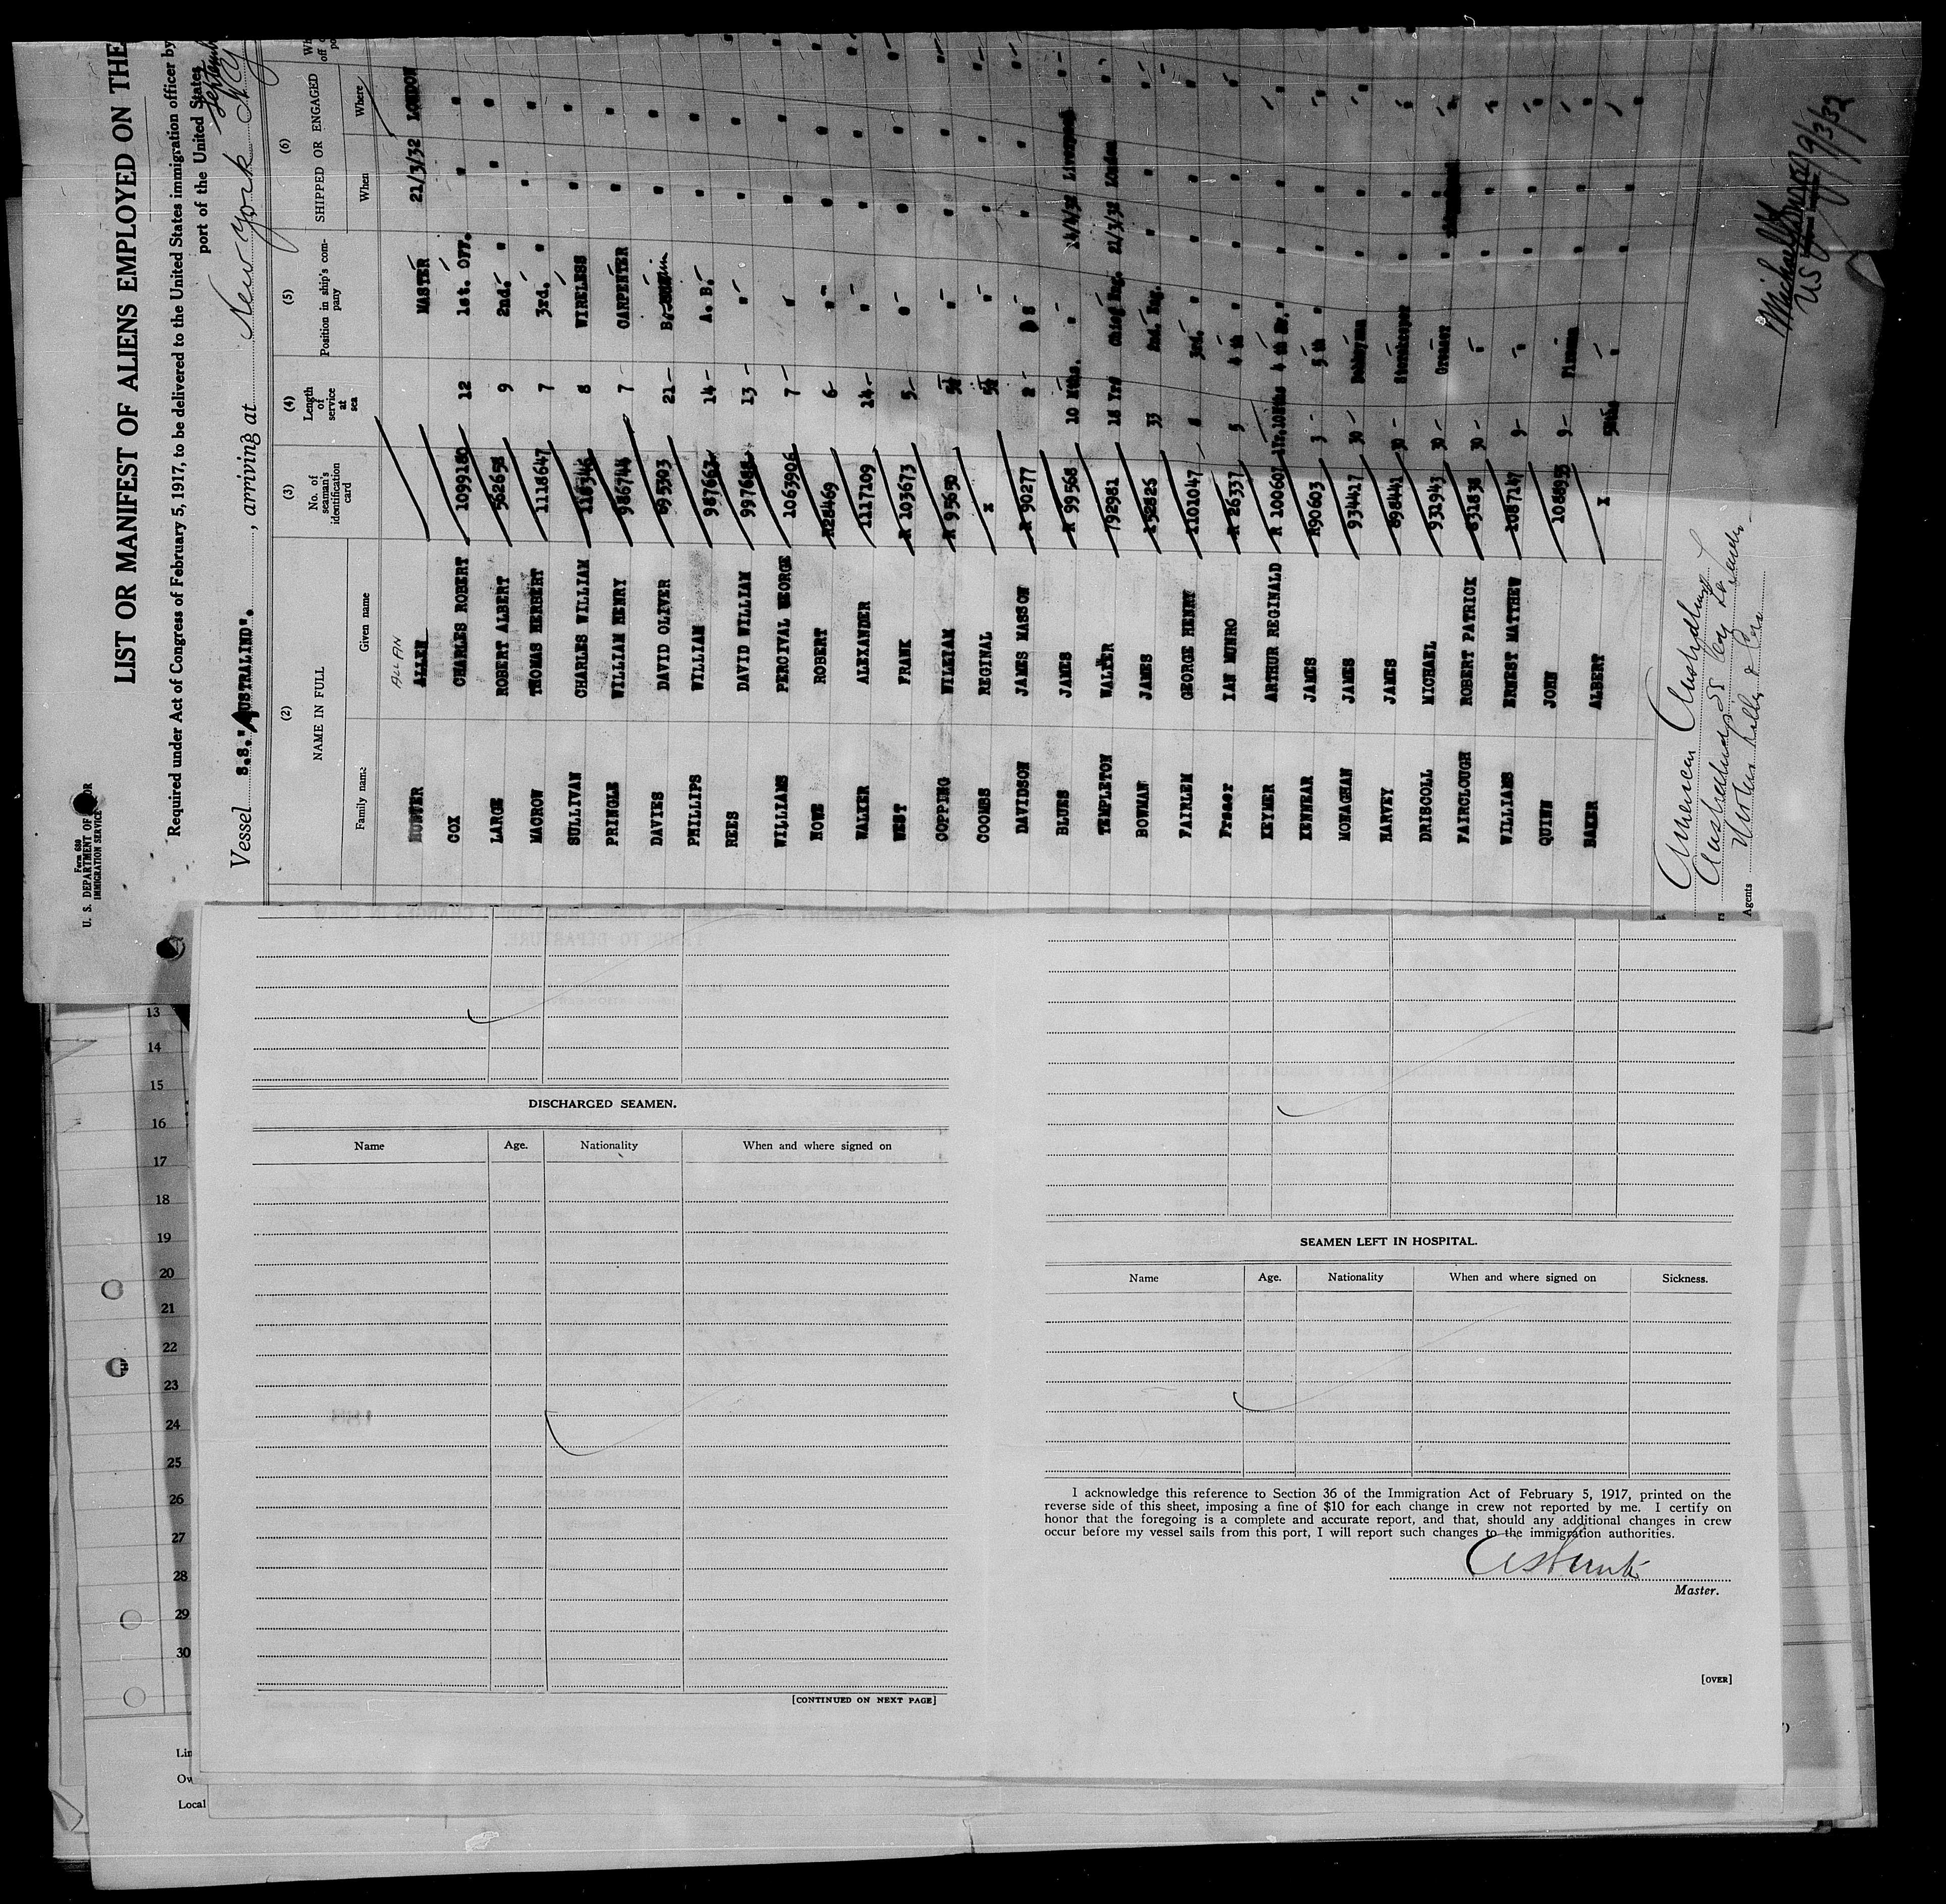 Form 680
U. S. DEPARTMENT OF
IMMIGRATION SERVICE
LIST OR MANIFEST OF ALIENS EMPLOYED ON THE
Required under Act of Congress of February 5, 1917, to be delivered to the United States immigration officer by
port of the United States
Vessel S.S. "AUSTRALIND". , arriving at New York
(2) (3) (4) (5) (6)
NAME IN FULL No. of seaman's identification card Length of service at sea Position in ship's company SHIPPED OR ENGAGED
Family name Given name When Where
ALLAN
ALLEN MASTER 21/3/32 LONDON
COX CHARLES ROBERT 1099180 12 1st. OFF. " "
LARGE ROBERT ALBERT 562658 9 2nd. " " "
MACROW THOMAS HERBERT 1118647 7 3rd. " " "
SULLIVAN CHARLES WILLIAM 8 WIRELESS " "
PRINGLE WILLIAM HENRY 986744 7 CARPENTER " "
DAVIES DAVID OLIVER 695393 21 " "
PHILLIPS WILLIAM 987663 14 A. B. " "
REES DAVID WILLIAM 997688 13 " " "
WILLIAMS PERCIVAL GEORGE 1063906 7 " " "
HOWE ROBERT R28469 6 " " "
WALKER ALEXANDER 1117109 14 " " "
WEST FRANK R 103673 5 " " "
COPPING WILLIAM R 95650 " " "
COOMBS REGINAL X " " "
DAVIDSON JAMES MASSON R 90277 2 " "
BLUES JAMES R 99568 10 Mths. " 14/4/32 Liverpool
TEMPLETON WALTER 792981 18 Yrs Chief Eng. 21/3/32 London
BOWMAN JAMES 33 2nd. Eng. " "
FAIRLEM GEORGE HENRY 1101047 8 3rd. " " "
Fraser IAN MUNRO R 26337 5 4 th " " "
KEYMER ARTHUR REGINALD R 100607 1Yr.10Mths 4 th " "
KENNEAR JAMES R90603 3 5 th " " "
MONAGHAN JAMES 934417 30 Donkeyman " "
HARVEY JAMES 698441 30 Storekeeper " "
DRISCOLL MICHAEL 931943 30 Greaser " "
FAIRCLOUGH ROBERT PATRICK 831838 30 " " "
WILLIAMS ERNEST MATTHEW 1087147 9 " " "
QUINN JOHN 108893 9 Fireman " "
BAKER ALBERT X " " "
American Australian
Agents
13
14
15
16
17
18
19
20
21
22
23
24
25
26
27
28
29
30
Lin
Ow
Local
DISCHARGED SEAMEN.
Name Age. Nationality When and where signed on
[CONTINUED ON NEXT PAGE]
SEAMEN LEFT IN HOSPITAL.
Name Age. Nationality When and where signed on Sickness.
I acknowledge this reference to Section 36 of the Immigration Act of February 5, 1917, printed on the
reverse side of this sheet, imposing a fine of $10 for each change in crew not reported by me. I certify on
honor that the foregoing is a complete and accurate report, and that, should any additional changes in crew
occur before my vessel sails from this port, I will report such changes to the immigration authorities.
Master.
[OVER]